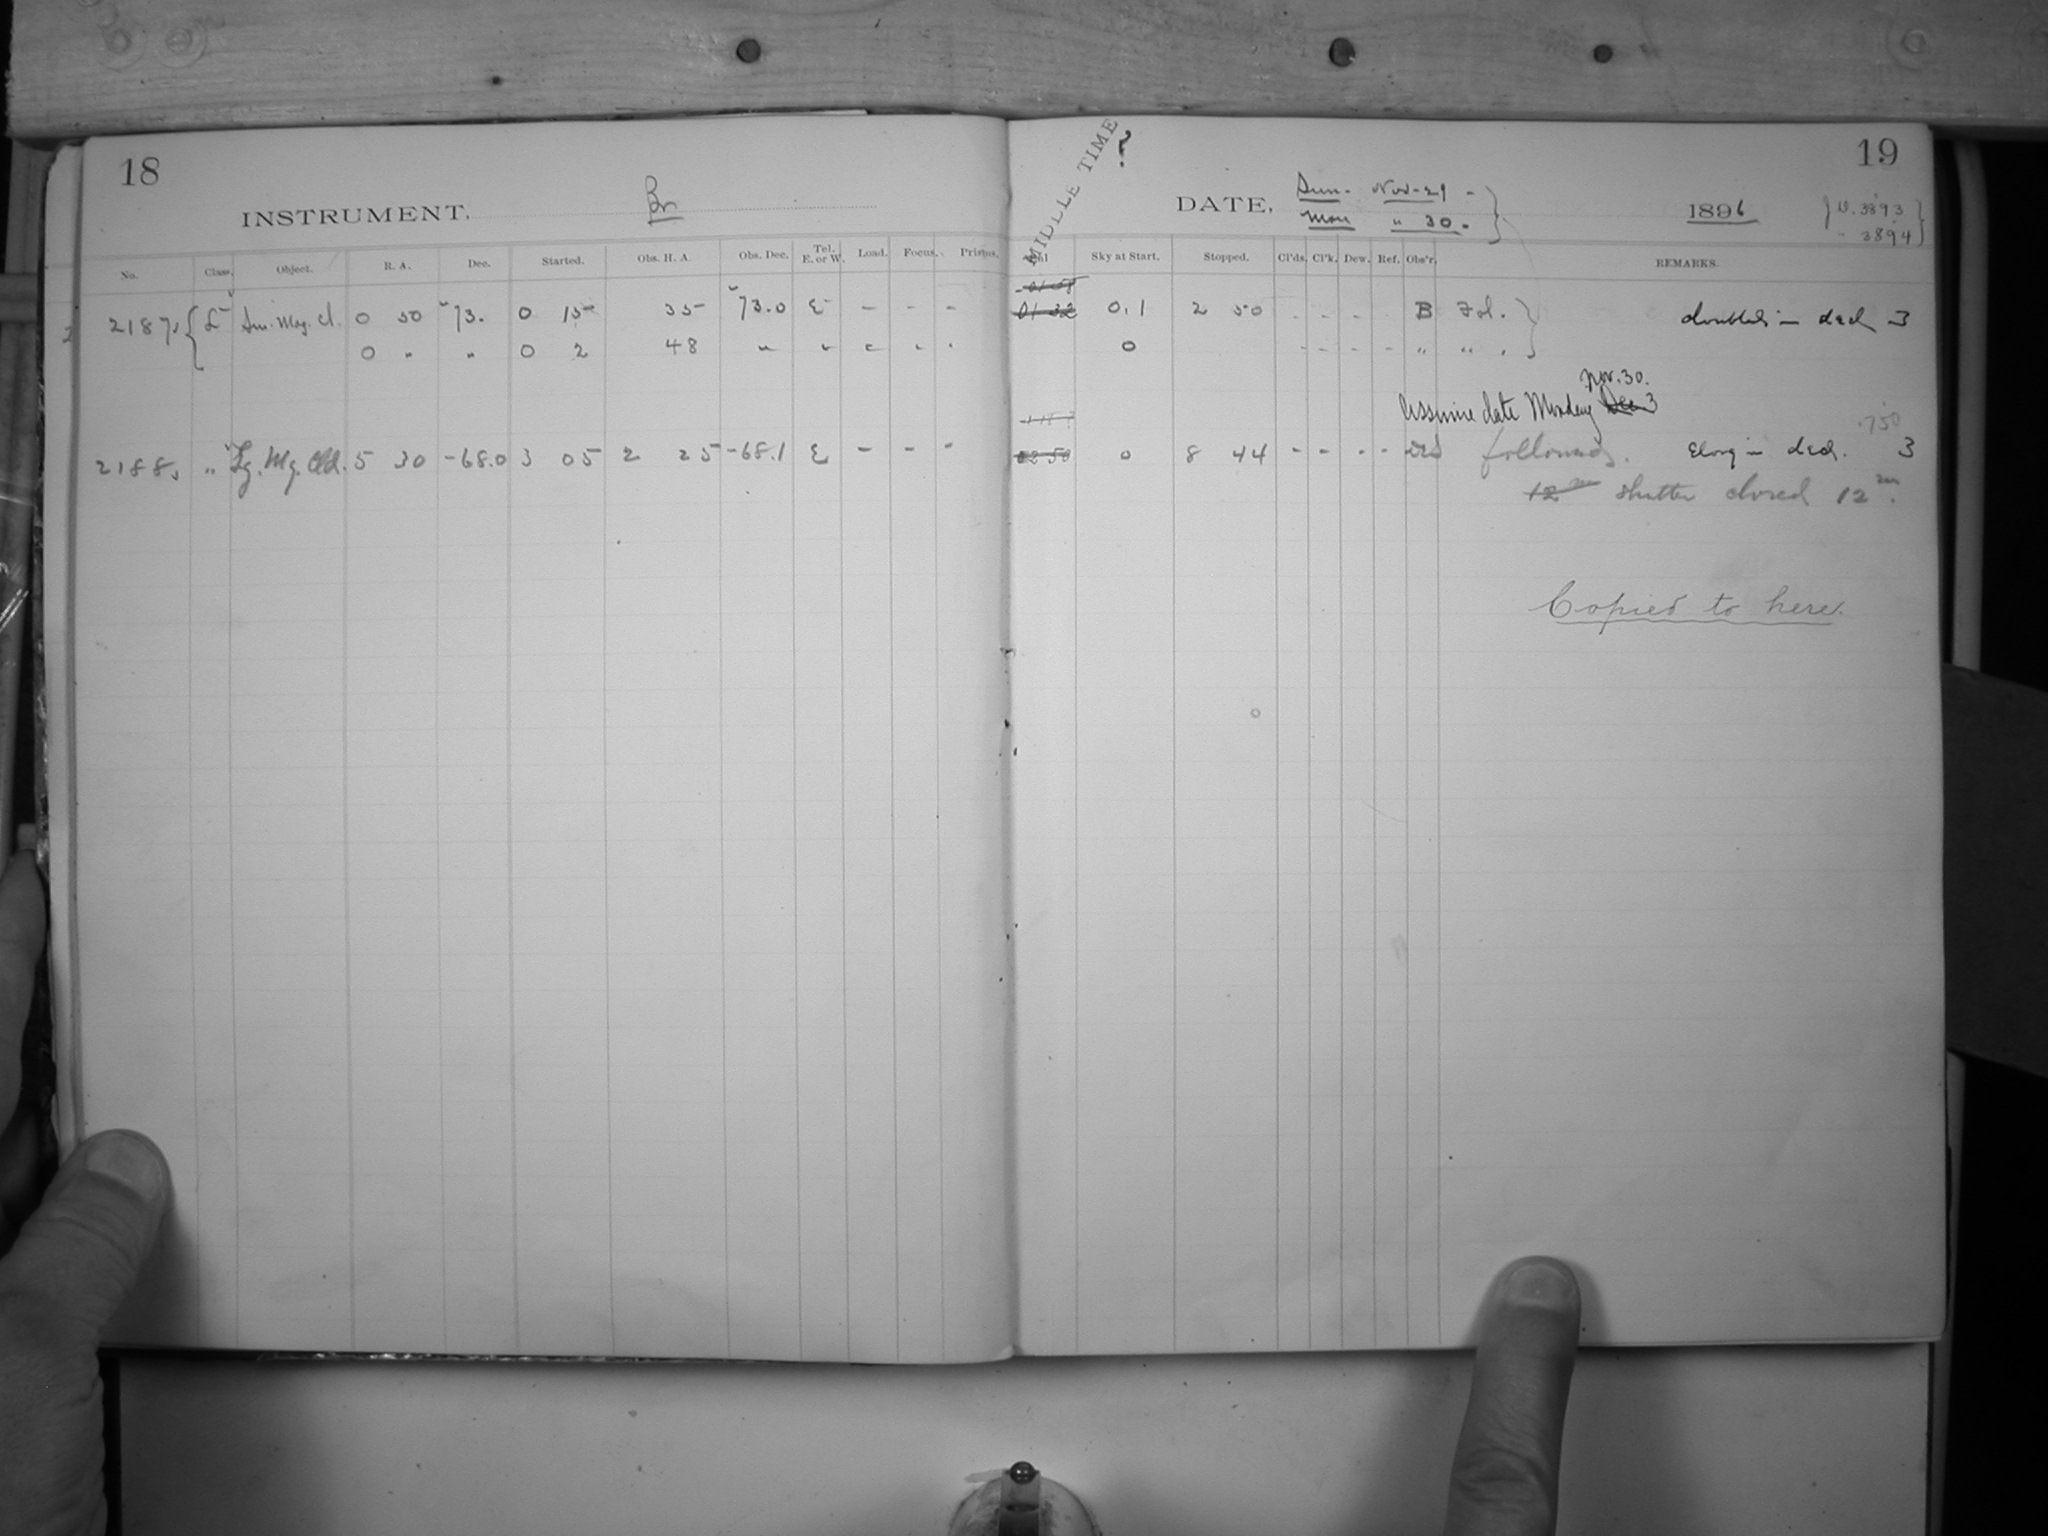 18
INSTRUMENT, Br
No. Class. Object. R. A. Dec. Started. Obs. H. A. Obs. Dec. Tel. E. or W. Load. Focus. Prisms.
2187, L Sm. Mag. Cl. 0 50 73. 0 15 35 73.0 E – – –
0 " " 0 2 48 "
2188, " Lg. Mg. Cld. 5 30 -68.0 3 05 2 25 -68.1 E – – –
19
MILLLE TIME ?
DATE, Sun. Nov. 29 -
Mon " 30. 1896
3893
3894
Sky at Start. Stopped. Cl'ds. Cl'k. Dew. Ref. Obs'r. REMARKS.
01 32 0.1 2 50 B Fol. doubled in decl 3
0 " "
Nov. 30.
Assume date Monday Dec 3
.750
02 50 0 8 44 - - - - followed. Elong in decl. 3
12m shutter closed 12m.
Copied to here.